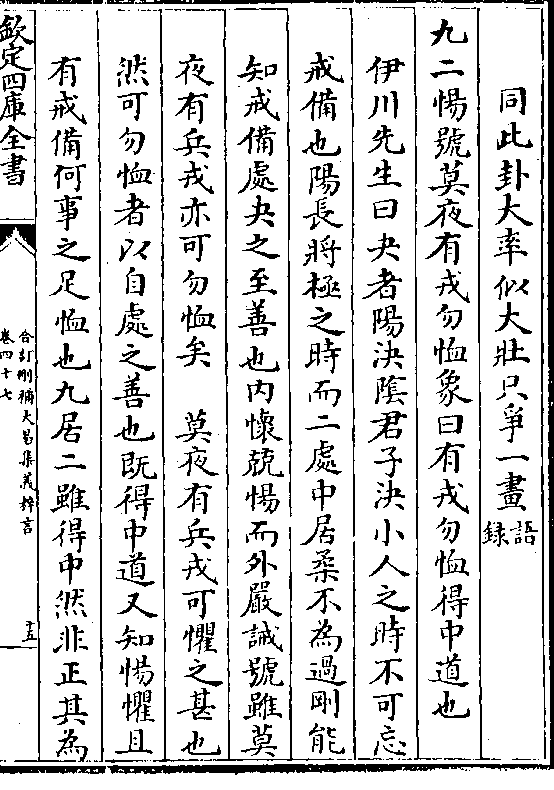 同此卦大率似大壯只爭一畫語錄
九二惕號莫夜有戎勿恤象曰有戎勿恤得中道也
伊川先生曰夬者陽決陰君子決小人之時不可忘
戒備也陽長將極之時而二處中居柔不為過剛能
知戒備處夬之至善也內懷兢惕而外嚴誡號雖莫
夜有兵戎亦可勿恤矣　莫夜有兵戎可懼之甚也
然可勿恤者以自處之善也既得中道又知惕懼且
有戒備何事之足恤也九居二雖得中然非正其為
欽定四庫全書
合訂刪補大易集義粹言
卷四十七
十五